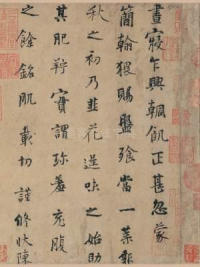 晝寢乍興輖飢正甚忽蒙
簡翰猥賜盤飧當一葉報
秋之初乃韭花逞味之始助
其肥羜實謂珎羞充腹
之餘銘肌載切謹修狀陳